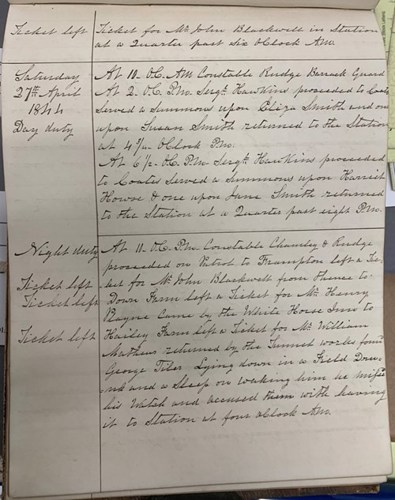 Ticket left Ticket for Mr John Blackwell in Station
at a Quarter past Six OClock AM.
Saturday At 10. OC. AM Constable Rudge Barrack Guard
27th April At 2. OC. P.M. Sergt Hawkins proceeded to Coates
1844 Served a Summons upon Eliza Smith and one
Day duty upon Susan Smith returned to the Station
at 4 1/4. OClock P.M.
At 6 1/2. OC. P.M. Sergt Hawkins proceeded
to Coates Served a Summons upon Harriet
Howse & one upon Jane Smith returned
to the Station at a Quarter past eight P.M.
Night duty At 11. OC. P.M. Constable Chamley & Rudge
proceeded on Patrol to Frampton left a Tic-
Ticket left ket for Mr John Blackwell from thence to
Ticket left Down Farm left a Ticket for Mr Henry
Payne Came by the White House Inn to
Ticket left Hailey Farm left a Ticket for Mr William
Mathews returned by the Tunnel works found
George Tiler Lying down in a Field Dru-
nk and a Sleep on waking him he missed
his Watch and accused them with having
it to Station at four oClock AM.